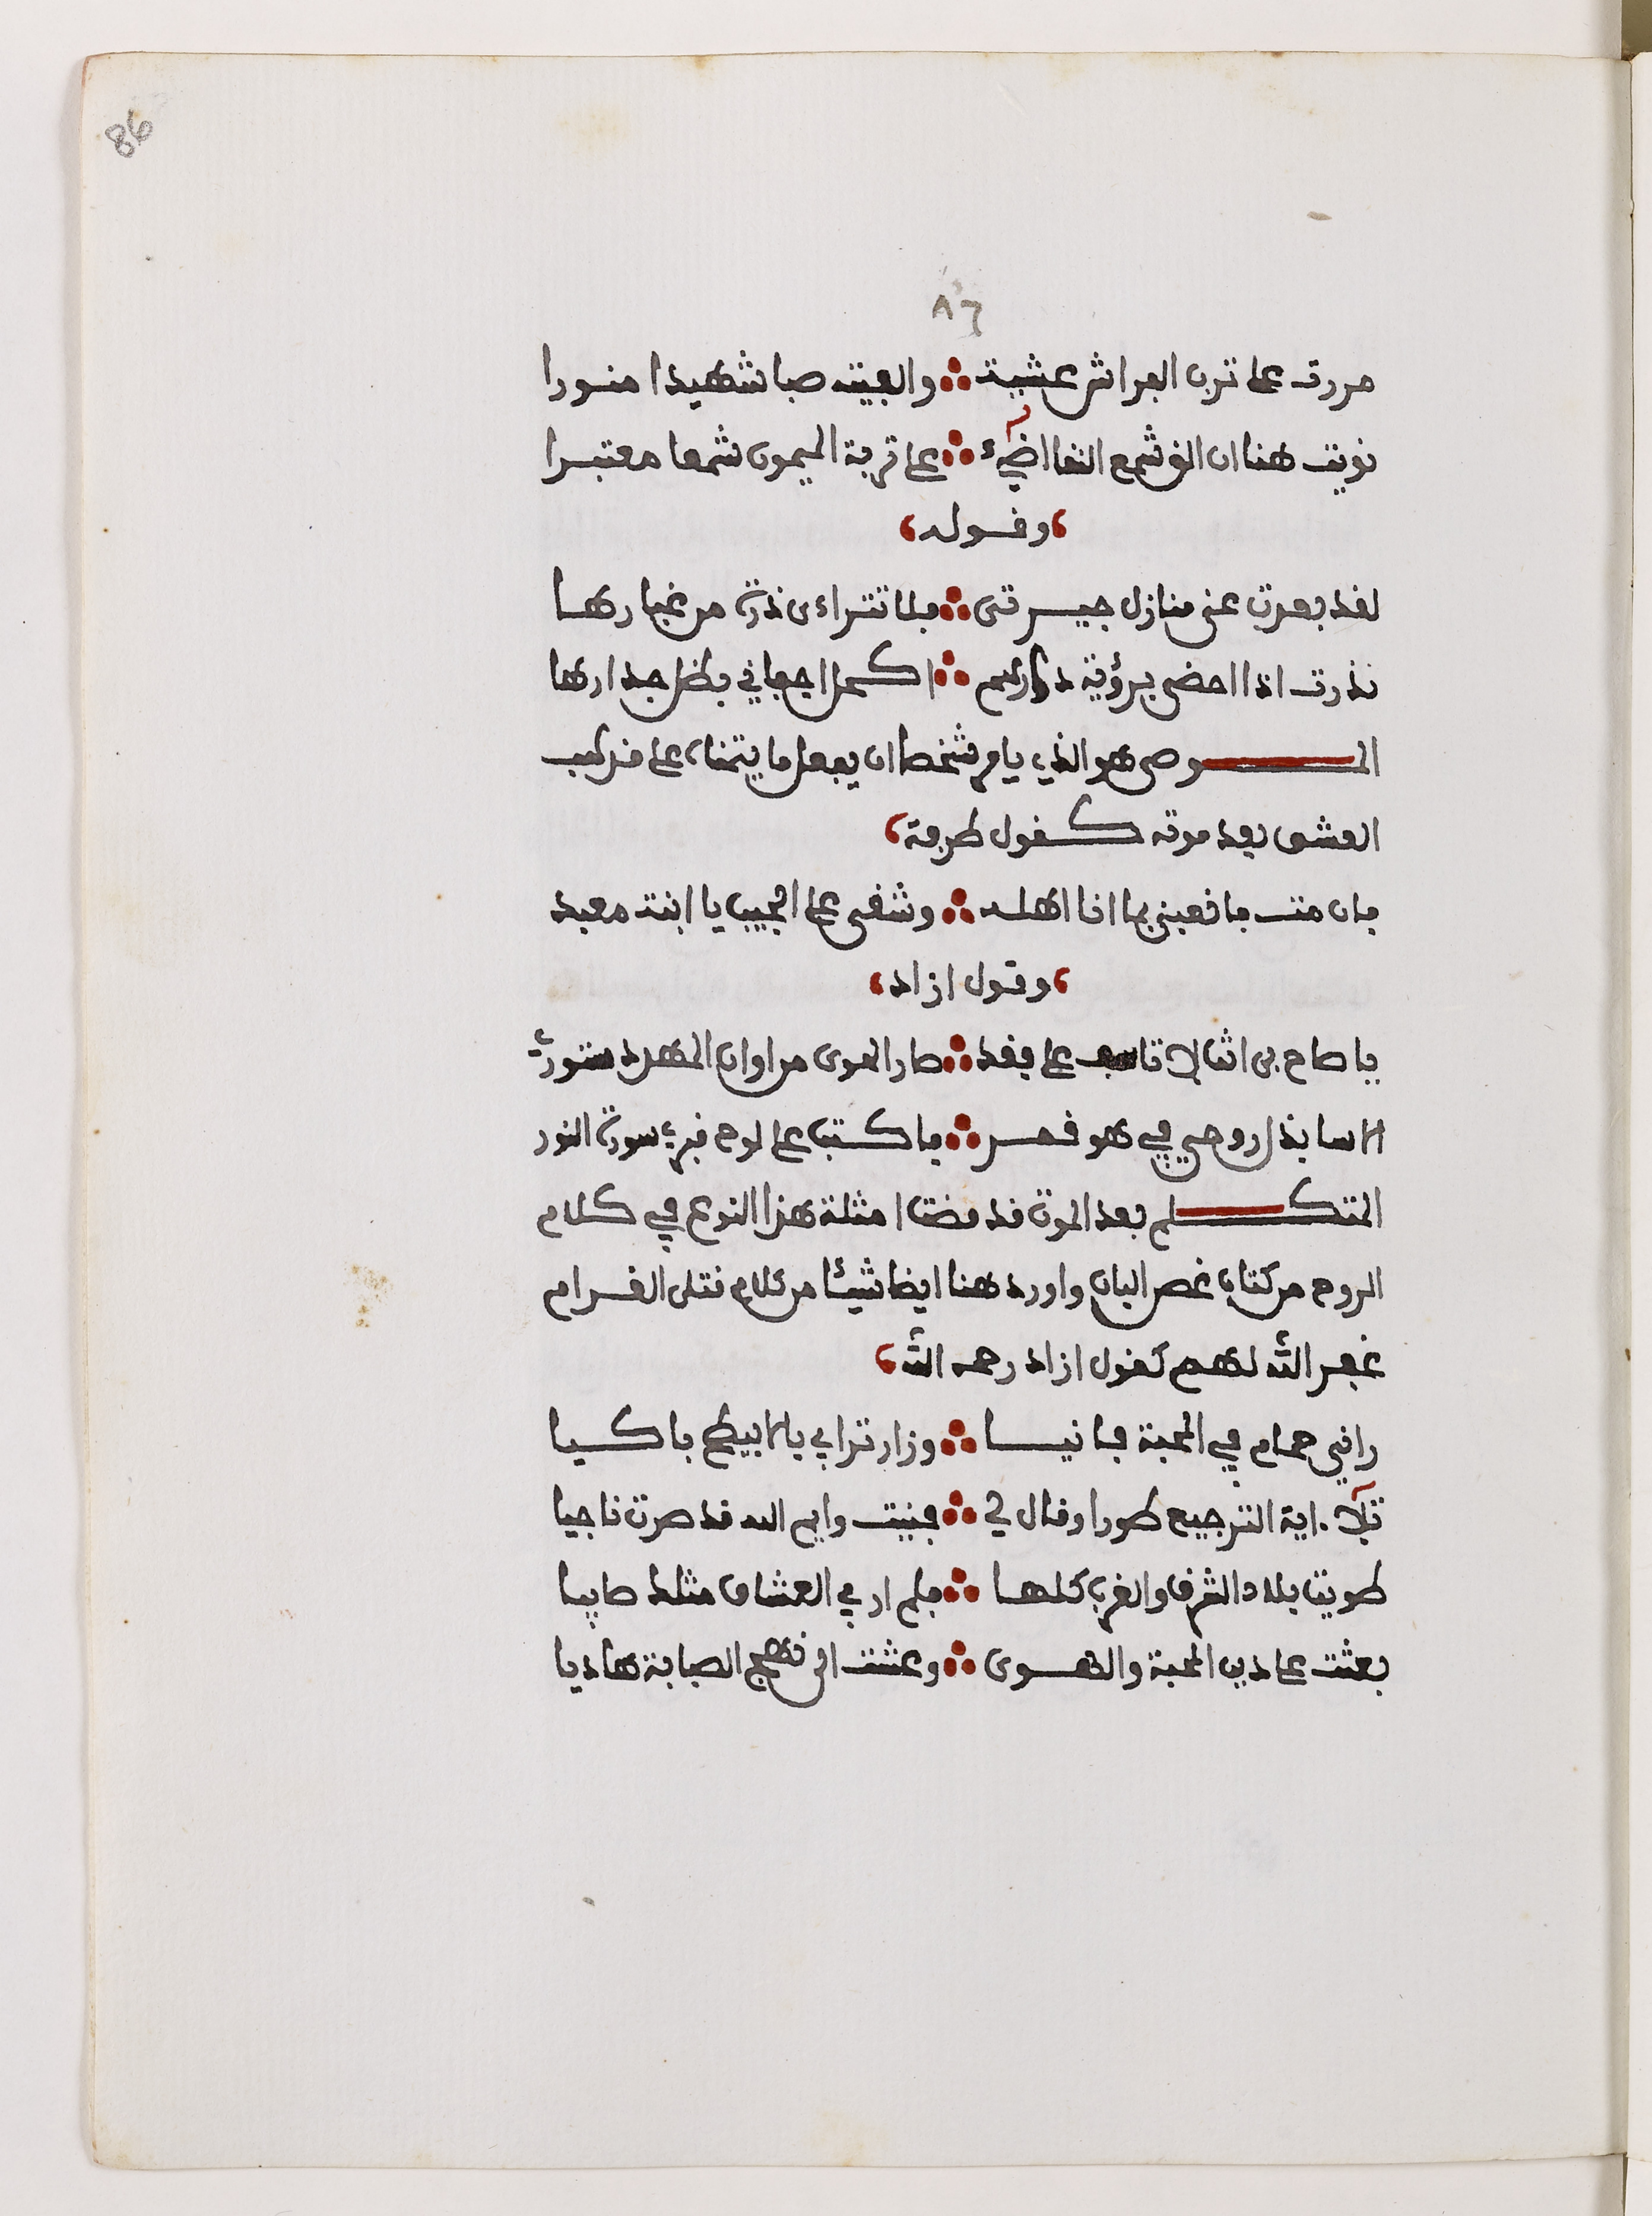 86
٨٦
مررت على ترب الفراش عشية ∴ والفيته صبا شهيدا منورا
نويت هنا ان الق شمع النقا اضيء ∴ على تربة الميمون شمعا معتبرا
وقوله
لقد بعدت عنى منازل جيرتى ∴ فلا تتراءى ذرة من غبارها
نذرت اذا احضى برؤية دارهم ∴ اكحل اجفاني بظل جدارها
الموصى هو الذي يامر شخصا ان يفعل ما يتمناه على قرلب
العشق بعد موته كقول طرفة
فان مت فانعينى بما انا اهله ∴ وشقى على الجيب يا ابنة معبد
وقول ازاد
يا صاح بى اثق لا تاسف على فقد ∴ صار الهوى من اوان المهد دستوري
اناسا بذل روحي في هو قمر ∴ فاكتب على لوح قبري سورة النور
المتكلم بعد الموت قد مضت امثلة هذا النوع في كلام
الروح من كتاب غصن البان واورد هنا ايضا شيئا من كلام قتلى الغرام
غفر الله لهم كقول ازاد رحمه الله
راني حمام في المحبة فانيا ∴ وزار ترابي بالابيطح باكيا
تلا اية الترجيع طورا وقال لي ∴ فنيت وايم الله قد صرت ناجيا
طويت بلاد الشرق والغرب كلها ∴ فلم ار في العشاق مثلك صابيا
بعثت على دين المحبة والهوى ∴ وعشت الى نهج الصبابة هاديا